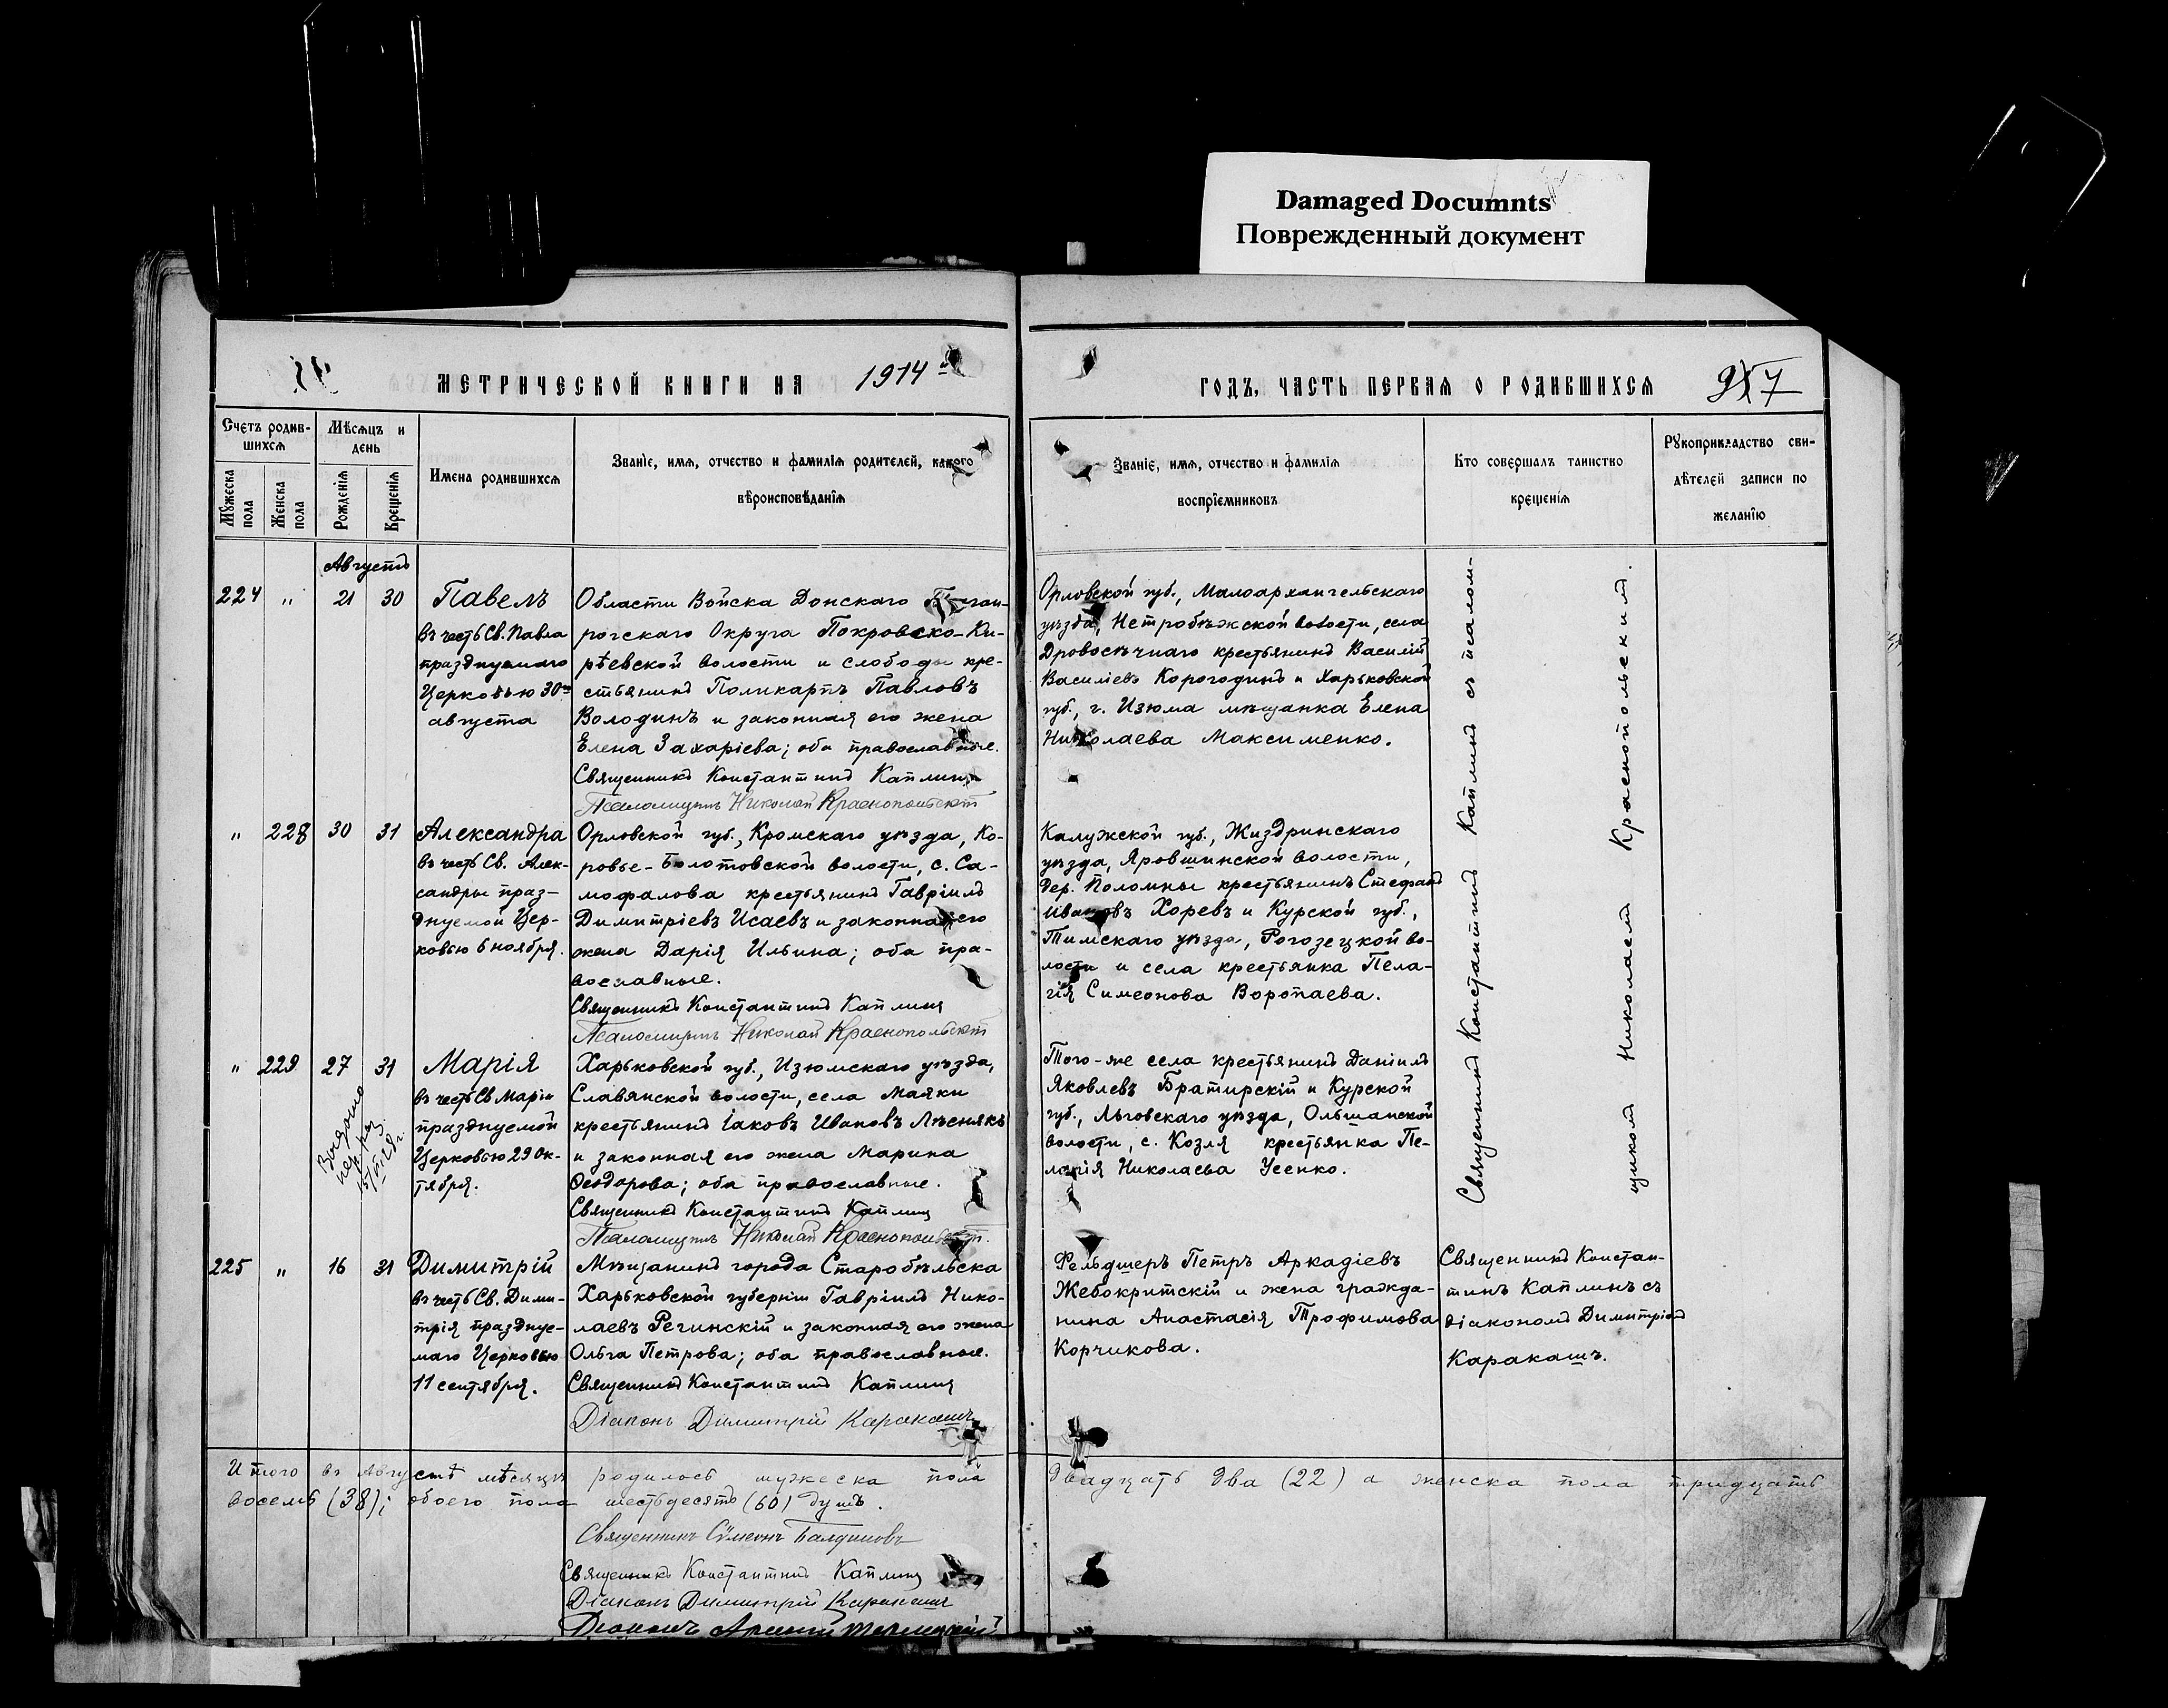 Damaged Documnts
Поврежденный документ
МЕТРИЧЕСКОЙ КНИГИ НА 1914
ГОДЪ, ЧАСТЬ ПЕРВАЯ О РОДИВШИХСЯ
Счетъ родив-
шихся
Мѣсяцъ и
день
Мужеска
пола
Женска
пола
Рожденія
Крещенія
Имена родившихся
Званіе, имя, отчество и фамилія родителей, какого
вѣроисповѣданія
Званіе, имя, отчество и фамилія
воспріемниковъ
Кто совершалъ таинство
крещенія
Рукоприкладство сви-
дѣтелей записи по
желанію
Августъ
224 " 21 30
Павелъ
въ честь Св. Павла
празднуемаго
Церковью 30го
августа
Области Войска Донскаго Таган-
рогскаго Округа Покровско-Ки-
рѣевской волости и слободы кре-
стьянинъ Поликарпъ Павловъ
Володинъ и законная его жена
Елена Захаріева; оба православные.
Священникъ Константинъ Каплинъ
Псаломщикъ Николай Краснопольскій
Орловской губ., Малоархангельскаго
уѣзда, Нетробѣжской волости, села
Дровосѣчнаго крестьянинъ Василій
Василіевъ Корогодинъ и Харьковской
губ., г. Изюма мѣщанка Елена
Николаева Максименко.
" 228 30 31
Александра
въ честь Св. Алек-
сандры праз-
днуемой Цер-
ковью 6 ноября.
Орловской губ., Кромскаго уѣзда, Ко-
ровье-Болотовской волости, с. Са-
мофалова крестьянинъ Гавріилъ
Димитріевъ Исаевъ и законная его
жена Дарія Ильина; оба пра-
вославные.
Священникъ Константинъ Каплинъ
Псаломщикъ Николай Краснопольскій
Калужской губ., Жиздринскаго
уѣзда, Яровшинской волости,
дер. Поломны крестьянинъ Стефанъ
Ивановъ Хоревъ и Курской губ.,
Тимскаго уѣзда, Рогозецкой во-
лости и села крестьянка Пела-
гія Симеонова Воропаева.
" 229 27 31
Марія
въ честь Св Маріи
празднуемой
Церковью 29 Ок-
тября.
Харьковской губ., Изюмскаго уѣзда,
Славянской волости, села Маяки
крестьянинъ Іаковъ Ивановъ Лѣснякъ
и законная его жена Марина
Ѳеодорова; оба православные.
Священникъ Константинъ Каплинъ
Псаломщикъ Николай Краснопольскій.
Того-же села крестьянинъ Даніилъ
Яковлевъ Братирскій и Курской
губ., Льговскаго уѣзда, Ольшанской
волости, с. Козля крестьянка Пе-
лагія Николаева Усенко.
Священникъ Константинъ Каплинъ съ псалом-
щикомъ Николаемъ Краснопольскимъ.
225 " 16 31
Димитрій
въ честь Св. Дими-
трія празднуе-
маго Церковью
11 сентября.
Мѣщанинъ города Старобѣльска
Харьковской губерніи Гавріилъ Нико-
лаевъ Регинскій и законная его жена
Ольга Петрова; оба православные.
Священникъ Константинъ Каплинъ
Діаконъ Димитрій Каракашъ
Фельдшеръ Петръ Аркадіевъ
Жебокритскій и жена гражда-
нина Анастасія Трофимова
Корчикова.
Священникъ Констан-
тинъ Каплинъ съ
діакономъ Димитріемъ
Каракашъ.
Итого въ Августѣ мѣсяцѣ родилось мужеска пола двадцать два (22) а женска пола тридцать
восемь (38); обоего пола шестьдесятъ (60) душъ.
Священникъ Константинъ Каплинъ
Діаконъ Димитрій Каракашъ